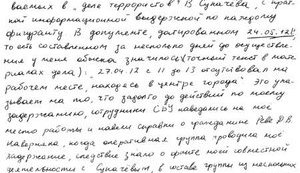 ваемых в "деле террористов" В Сукачева, с крат-
кой информационной выдержкой по каждому
фигуранту. В документе, датированном 24.05.12г.
то есть составленном за несколько дней до осуществле-
ния у меня обыска, значилось (точный текст в мате-
риалах дела): "27.04.12 с 11 до 13 отсутствовал на
рабочем месте, находясь в центре города". Это ука-
зывает на то, что задолго до действий по моему
задержанию, сотрудники СБУ наведались на мое
место работы и навели справки о гражданине Реве В.В.
Наверняка, когда оперативная группа проводила мое
задержание, следствие знало о факте моей совместной
деятельности с Сукачевым, в составе группы из нескольких